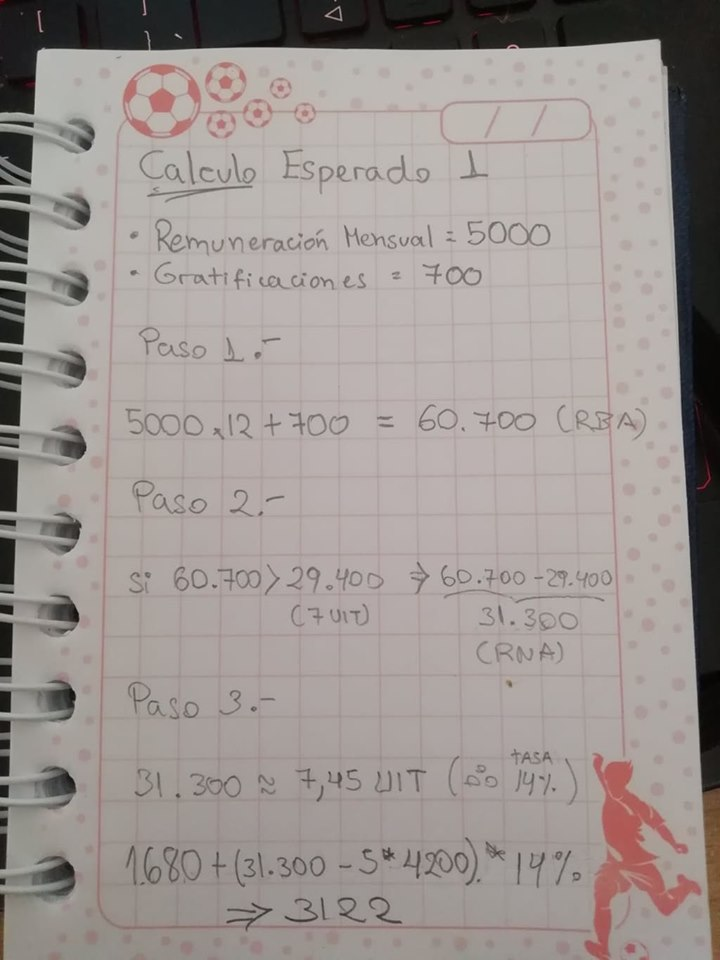 Calculo Esperado 1
• Remuneración Mensual = 5000
• Gratificaciones = 700
Paso 1.-
5000x12 + 700 = 60.700 (RBA)
Paso 2.-
si 60.700 > 29.400 ⇒ 60.700 - 29.400
(7 UIT) 31.300
(RNA)
Paso 3.-
31.300 ≈ 7,45 UIT (∴ TASA 14%)
1680 + (31.300 - 5*4200).* 14%
⇒ 3122